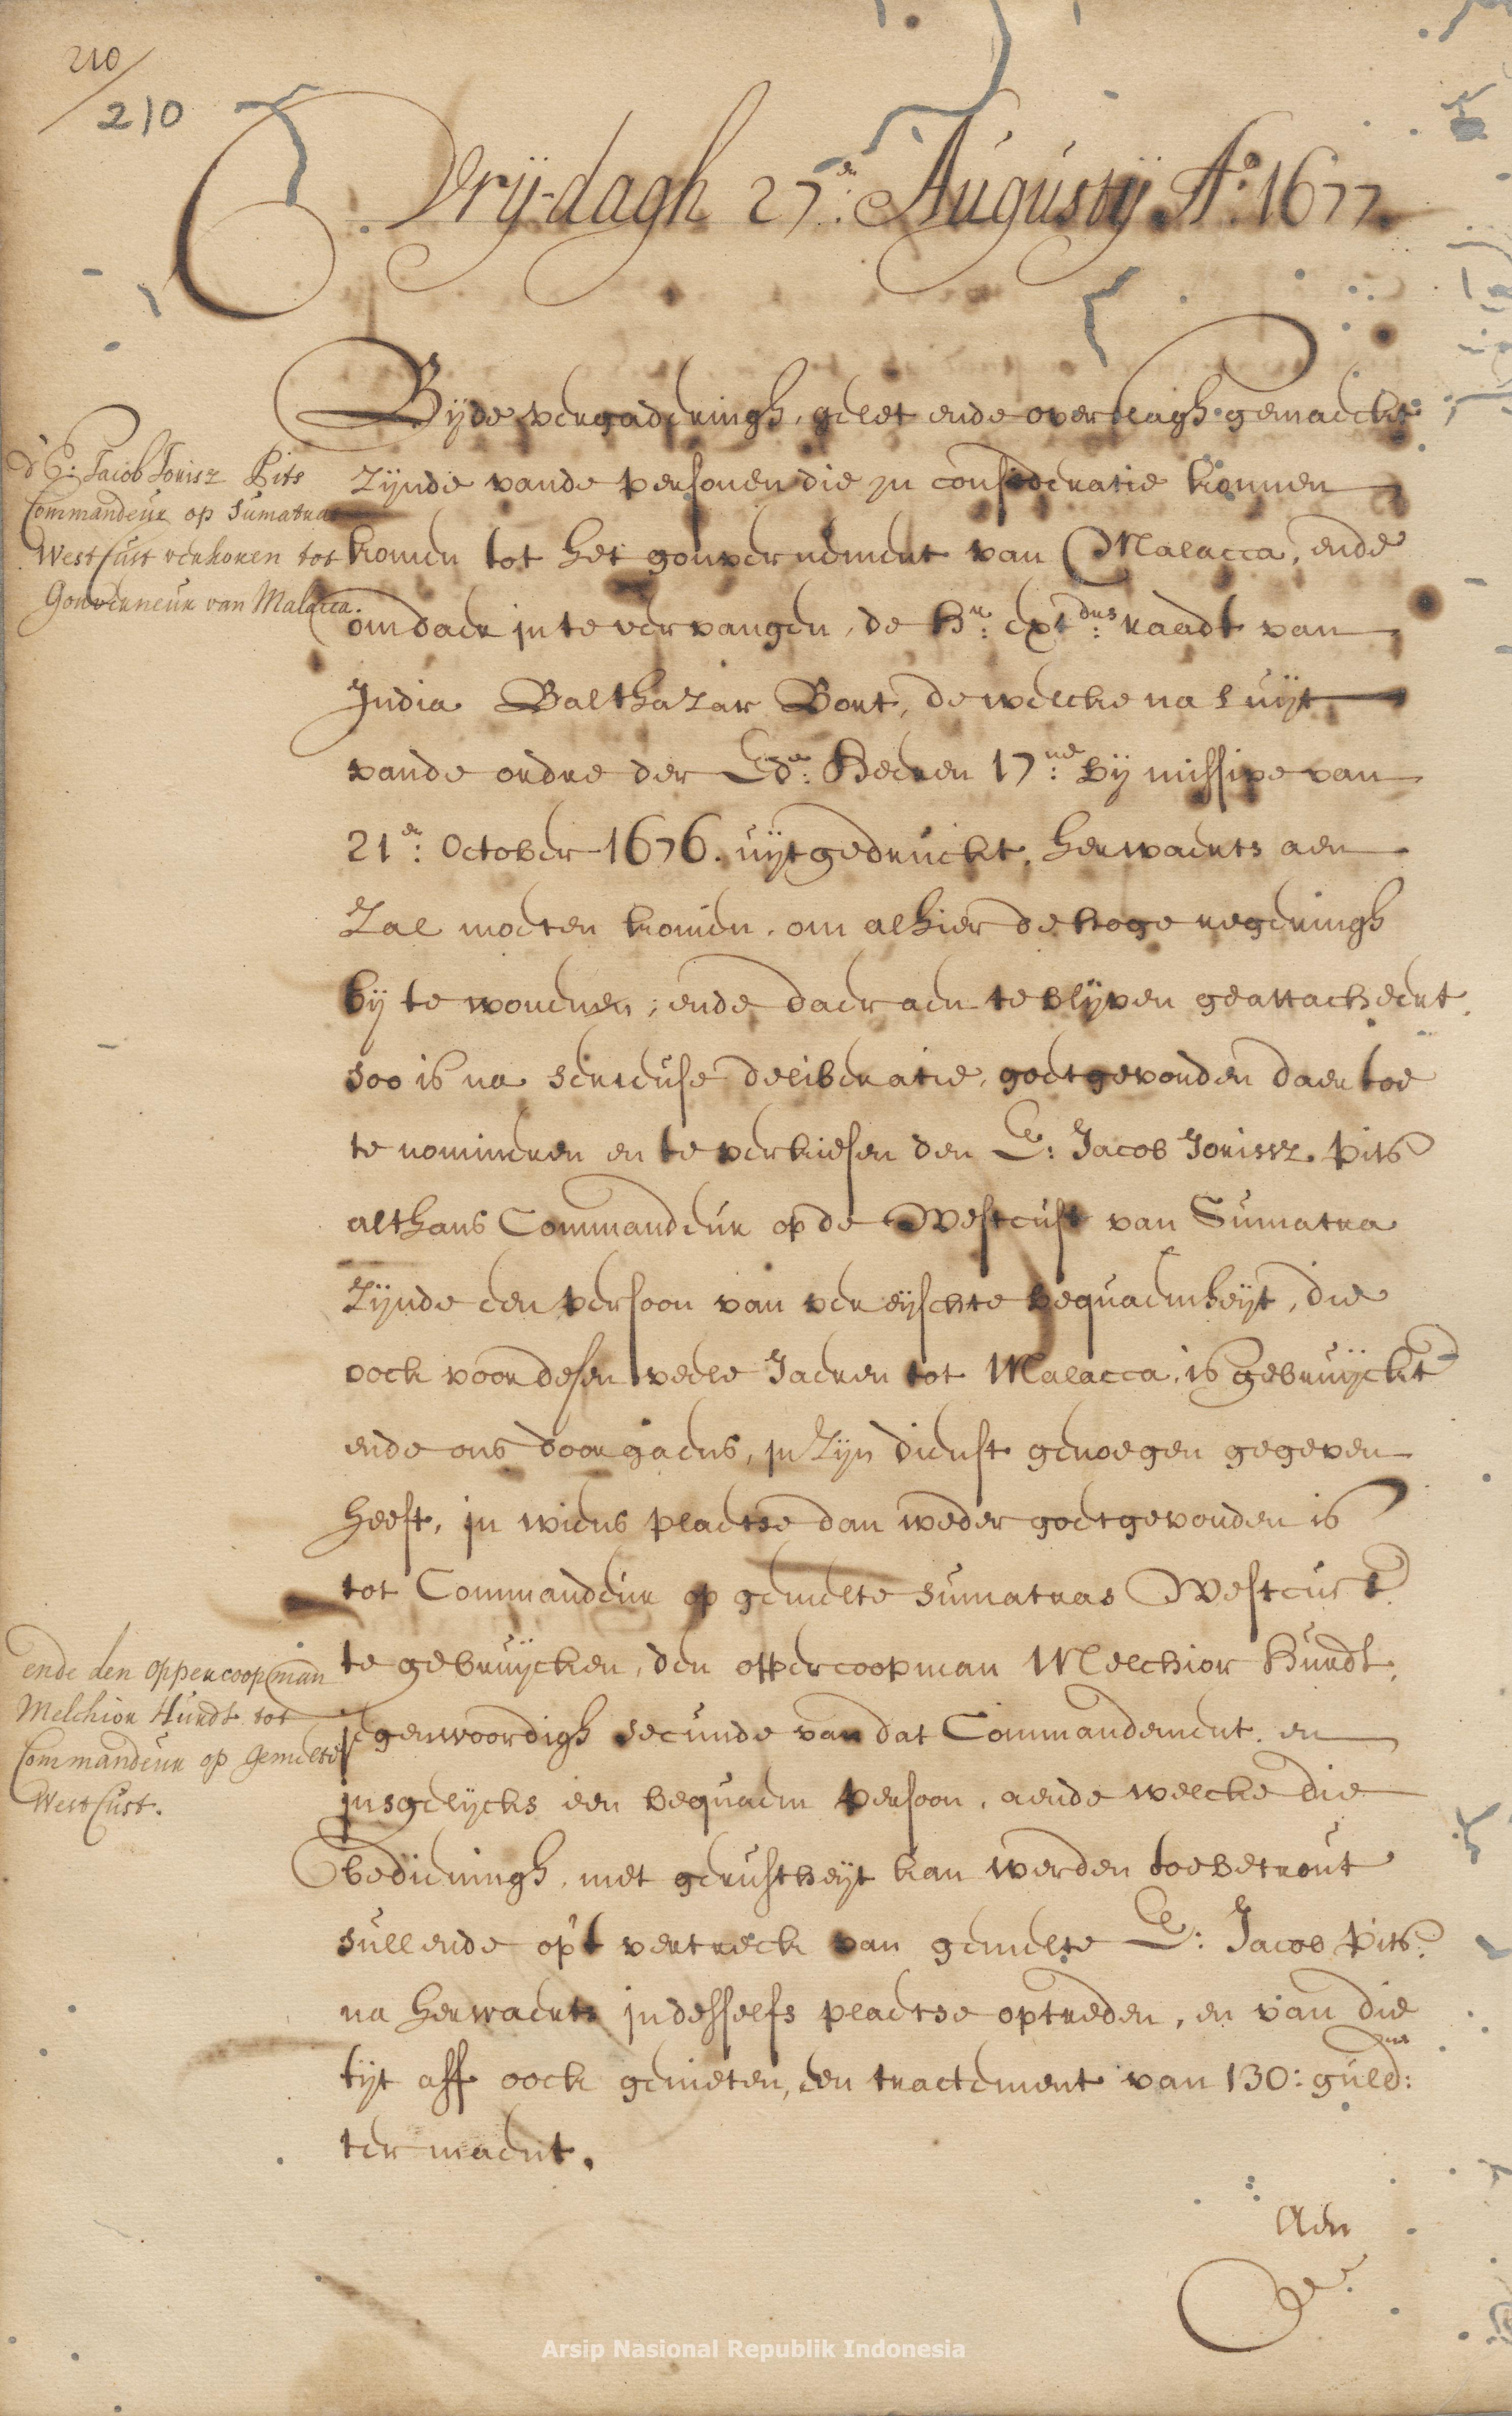 210
210
Vrÿ-dagh 27:en Augustÿ Ao: 1677.
Bÿde vergaderingh, gelet ende overslagh gemaeckt
zÿnde vande persoonen die in consideratie konnen
komen tot het gouvernement van Malacca, ende
om daer in te vervangen, de Hr: extdrs: raadt van
India Balthazar Bort, dewelcke na luÿt
vande ordre der Ede: Heeren 17:ne bÿ missive van
21:en October 1676. uÿtgedruckt, herwaerts aen
zal moeten komen, om alhier de hoge regeringh
bÿ te woonen; ende daer aen te blÿven geattacheert,
soo is na serieuse deliberatie, goetgevonden daer toe
te nomineren en te verkiesen den E: Jacob Jorissz. Pits
althans Commandeur op de Westcust van Sumatra
zÿnde een persoon van vereÿschte bequaemheÿt, die
oock voor desen veele Jaeren tot Malacca, is gebruÿckt
ende ons doorgaens, in zÿn dienst genoegen gegeven
heeft, in wiens plaetse dan weder goetgevonden is
tot Commandeur op gemelte Sumatras Westcust
te gebruÿcken, den oppercoopman Melchior Hurdt,
jegenwoordigh secunde van dat Commandement. en
insgelÿcks een bequaem persoon, aende welcke die
bedieningh, met gerustheÿt kan werden toebetrout
sullende op't vertreck van gemelte E: Jacob Pits.
na herwaerts in desselfs plaetse optreden, en van die
tÿt aff oock genieten, een tractement van 130: guld:ens
ter maent.
Aen
d'E: Jacob Jorisz Pits
Commandeur op Sumatras
West Cust verkoren tot
Gouverneur van Malacca.
ende den oppercoopman
Melchior Hurdt tot
Commandeur op gemelte
West Cust.
Arsip Nasional Republik Indonesia